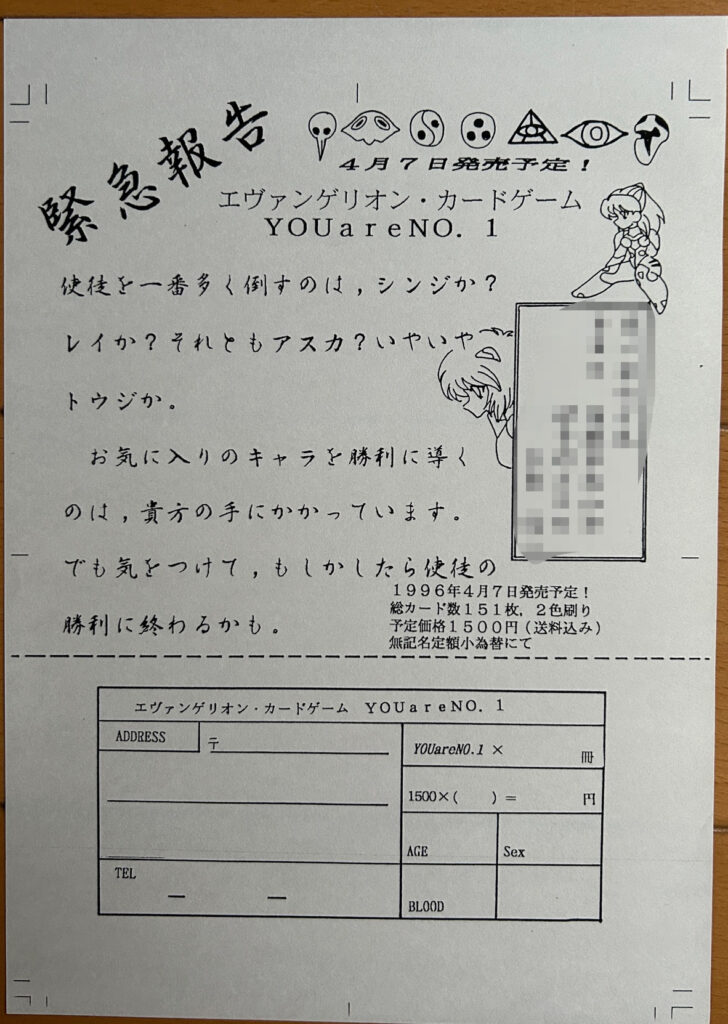 緊急報告
4月7日発売予定！
エヴァンゲリオン・カードゲーム
YOUareNO．1
使徒を一番多く倒すのは，シンジか？
レイか？それともアスカ？いやいや
トウジか。
お気に入りのキャラを勝利に導く
のは，貴方の手にかかっています。
でも気をつけて，もしかしたら使徒の
勝利に終わるかも。
1996年4月7日発売予定！
総カード数151枚，2色刷り
予定価格1500円（送料込み）
無記名定額小為替にて
エヴァンゲリオン・カードゲーム　YOUareNO．1
ADDRESS
〒
YOUareNO.1 × 冊
1500×(　　) ＝ 円
AGE
Sex
TEL
― ―
BLOOD